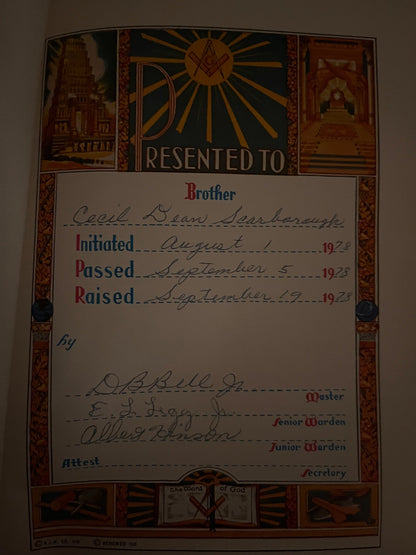 PRESENTED TO
Brother
Cecil Dean Scarborough
Initiated August 1 1978
Passed September 5 1978
Raised September 19 1978
by
D B Bell Jr.
Master
E. L. Jr.
Senior Warden
Albert Hinson
Junior Warden
Attest
Secretary
The Word of God